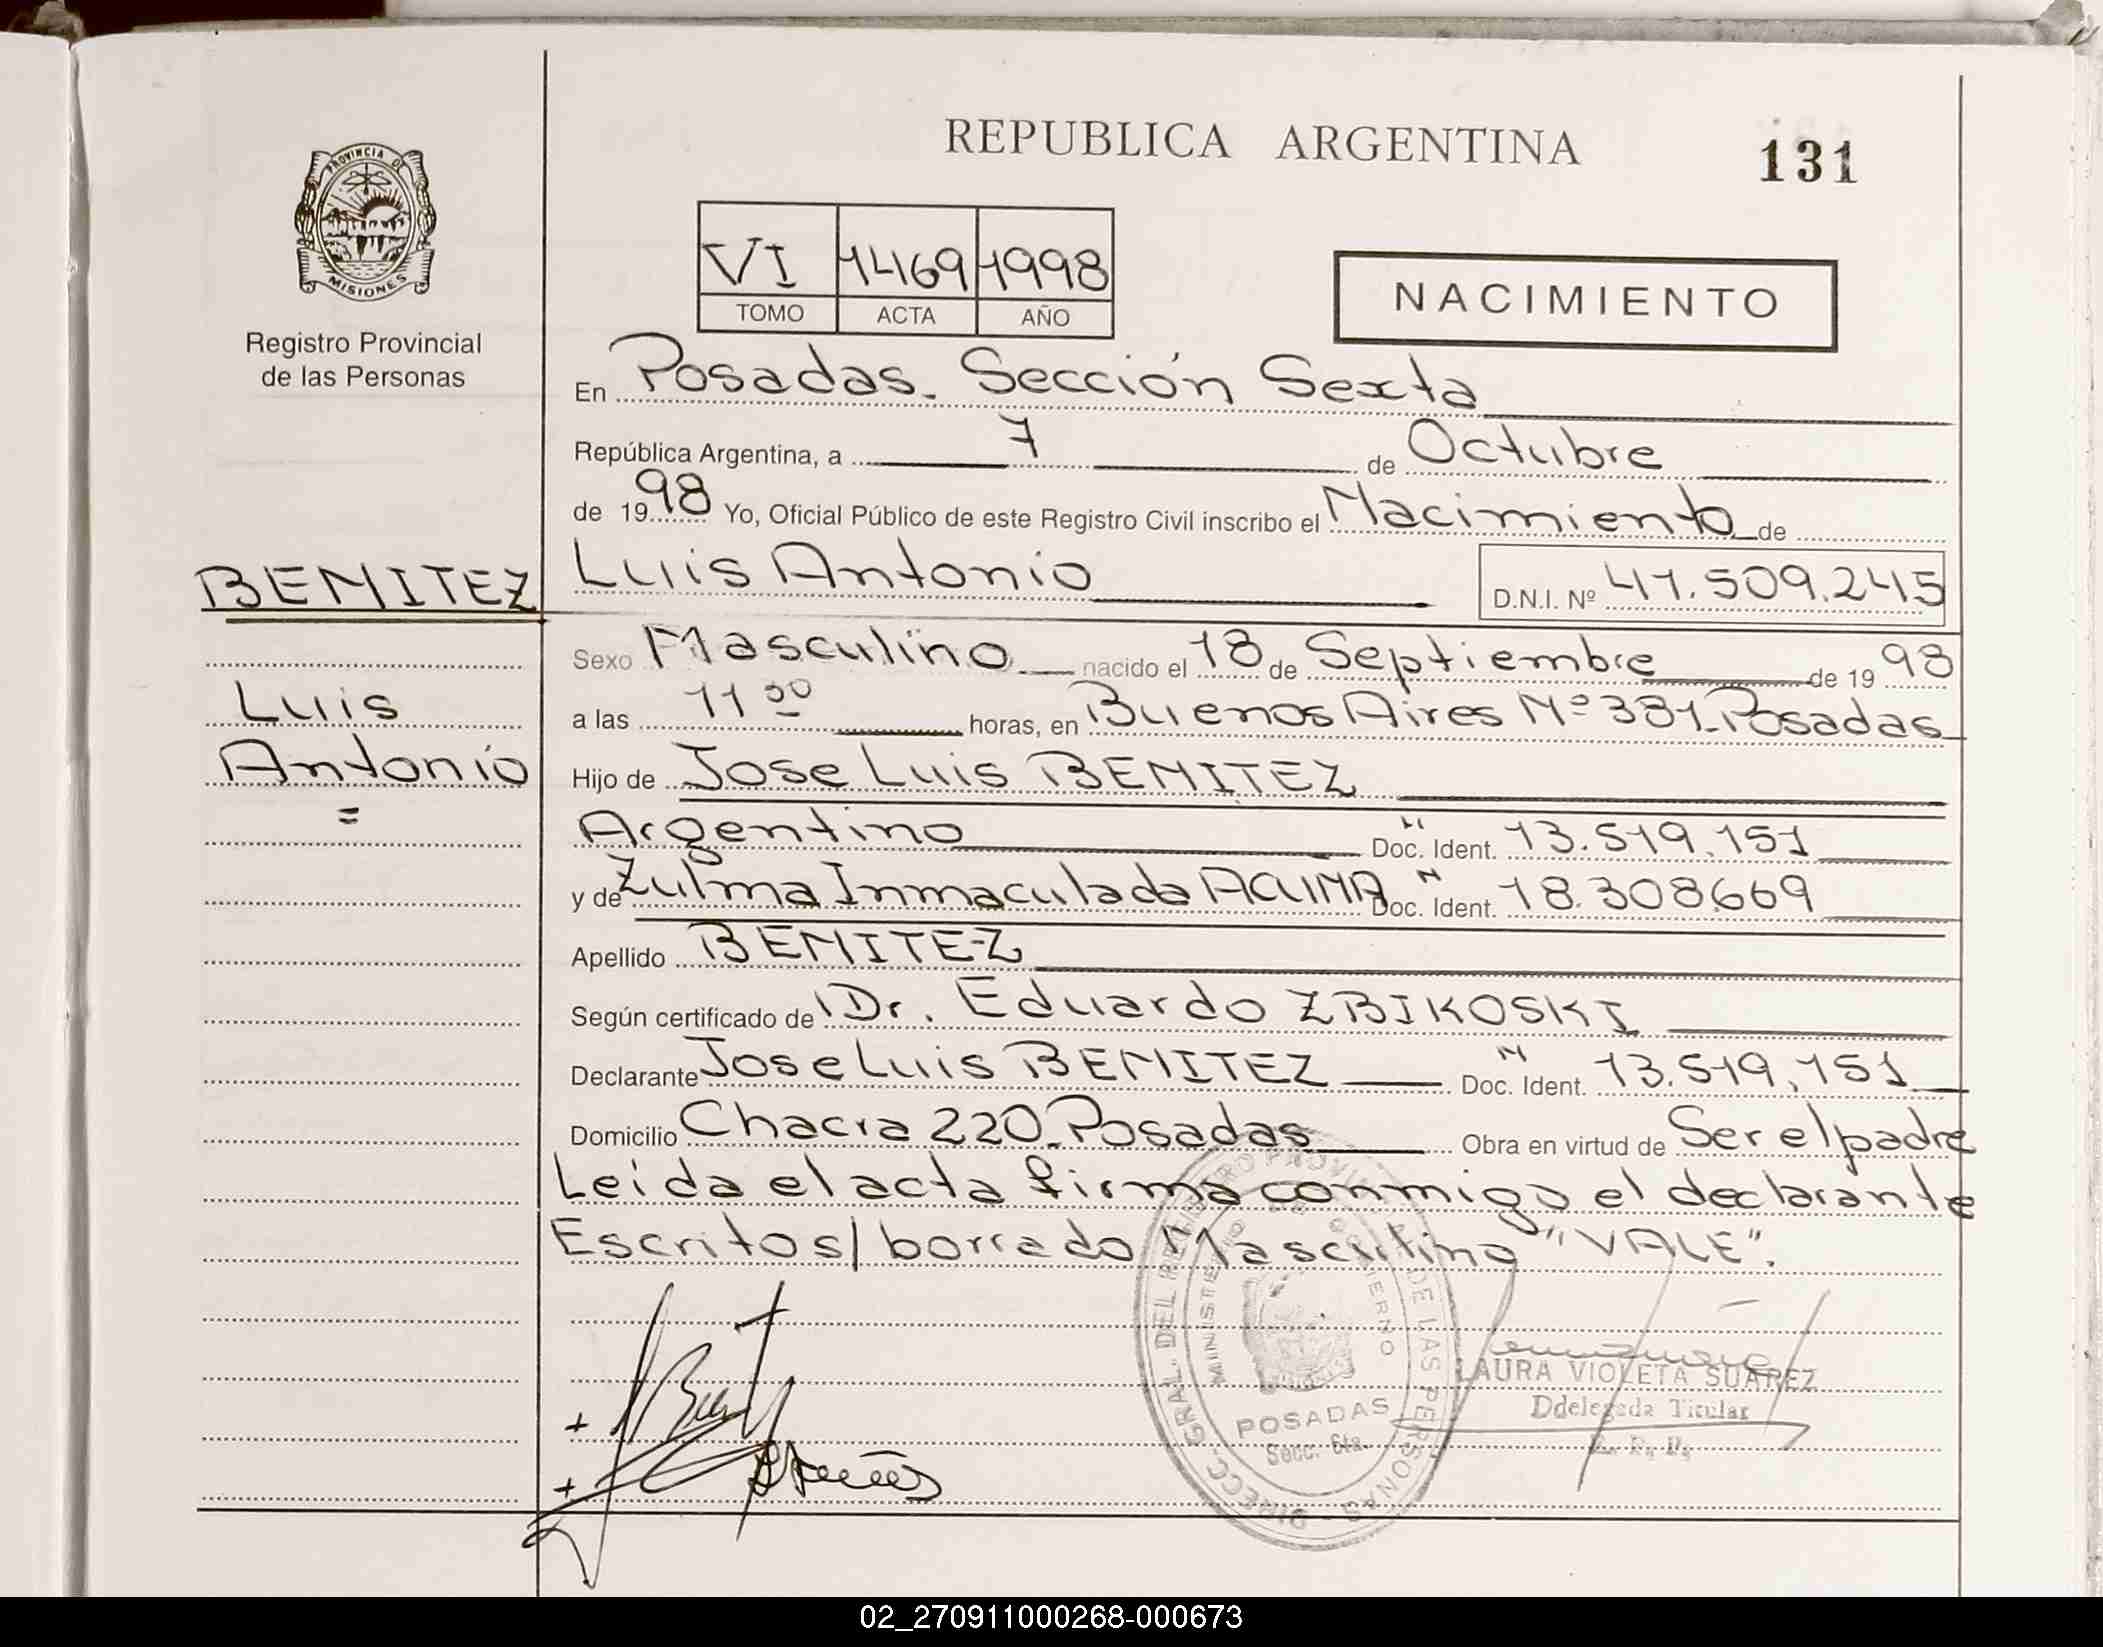 REPUBLICA ARGENTINA
131
PROVINCIA DE
MISIONES
Registro Provincial
de las Personas
VI 1469 1998
TOMO ACTA AÑO
NACIMIENTO
En Posadas. Sección Sexta
República Argentina, a 7 de Octubre
de 1998 Yo, Oficial Público de este Registro Civil inscribo el Nacimiento de
BENITEZ
Luis Antonio
D.N.I. Nº 41.509.245
Sexo Masculino nacido el 18 de Septiembre de 1998
Luis
a las 11 00 horas, en Buenos Aires Nº 381. Posadas
Antonio
=
Hijo de Jose Luis BENITEZ
Argentino " Doc. Ident. 13.519.151
y de Zulma Inmaculada Doc. Ident. 18.308.669
Apellido BENITEZ
Según certificado de Dr. Eduardo ZBIKOSKI
Declarante Jose Luis BENITEZ Doc. Ident. 13.519.151
Domicilio Chacra 220. Posadas Obra en virtud de Ser el padre
Leída el acta firma conmigo el declarante
Escritos/ borrado Masculino "VALE".
DIRECC. GRAL. DEL REGISTRO PROVINCIAL DE LAS PERSONAS
MINISTERIO DE GOBIERNO
POSADAS
Secc. 6ta.
LAURA VIOLETA SUAREZ
Ddelegada Titular
02_270911000268-000673